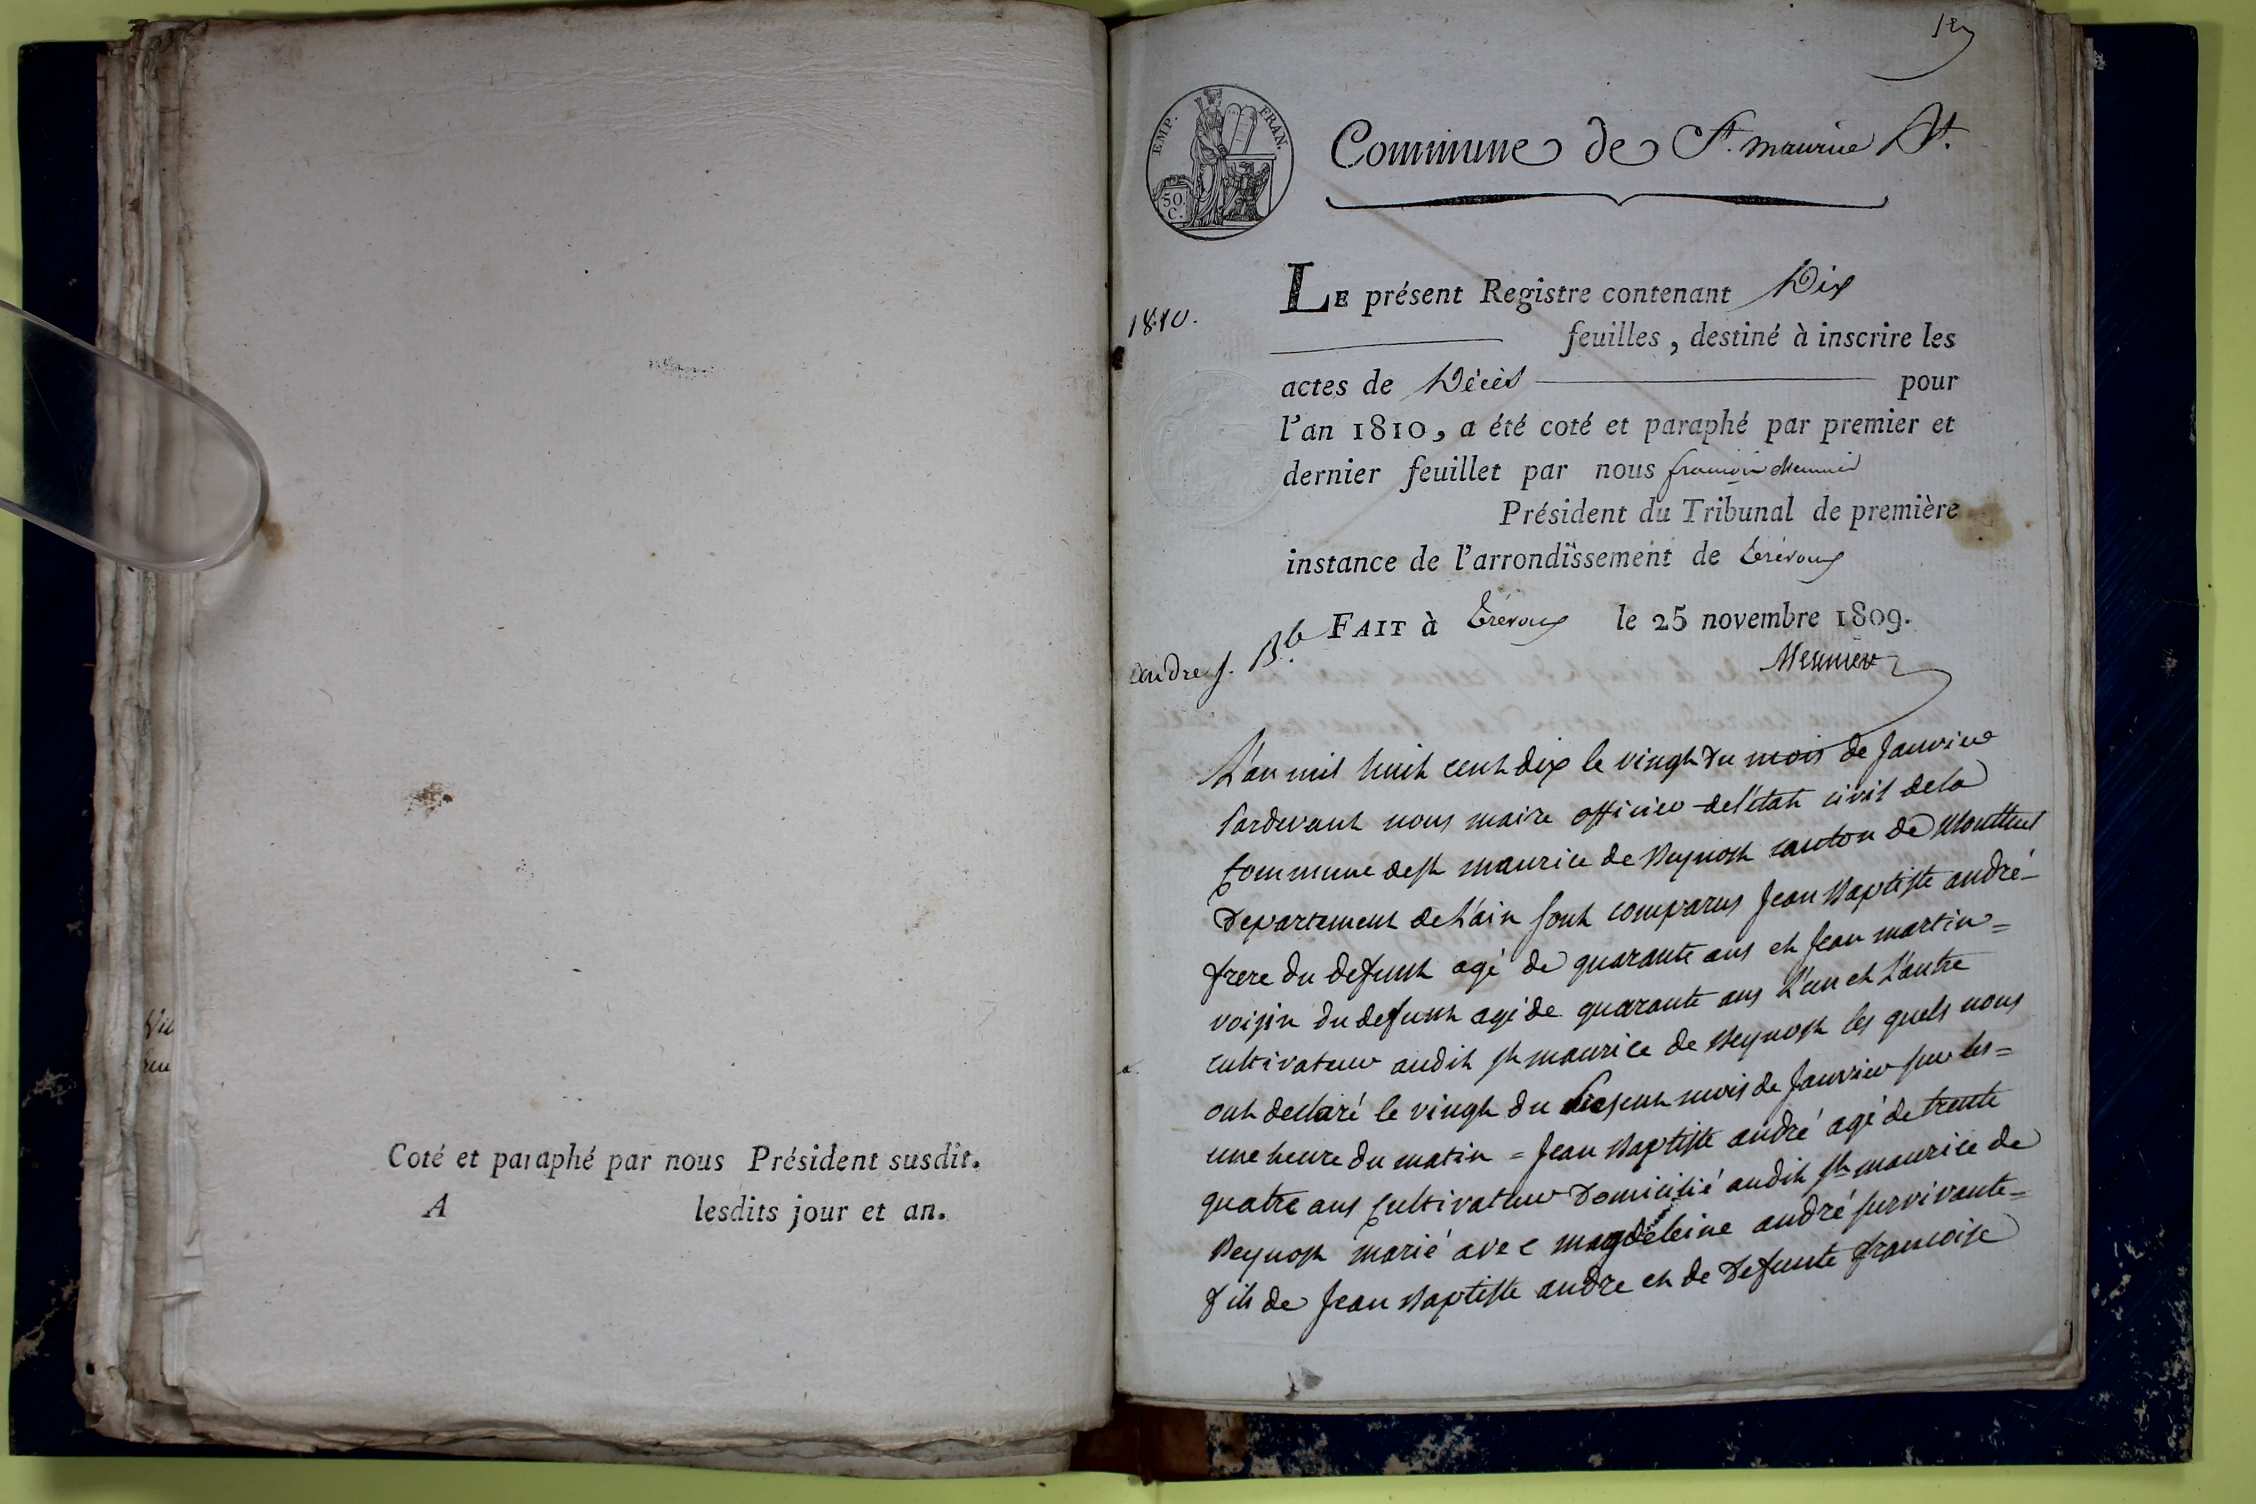 Coté et paraphé par nous Président susdit.
A lesdits jour et an.
EMP. FRAN.
50.
C.
Commune de St. maurice Bt.
LE présent Registre contenant Dix
1810.
feuilles, destiné à inscrire les
actes de Décès pour
l'an 1810, a été coté et paraphé par premier et
dernier feuillet par nous françois Meunier
Président du Tribunal de première
instance de l'arrondissement de trévoux
FAIT à trévoux le 25 novembre 1809.
andre J. Bte
Meunier
L'an mil huit cent dix le vingt du mois de Janvier
Pardevant nous maire officier de l'état civil dela
Commune de st maurice de Beynost canton de Montluel
Departement de L'ain sont comparus Jean Baptiste andré
frere du defunt agé de quarante ans et Jean martin =
voisin du defunt agé de quarante ans L'un et L'autre
cultivateur audit st maurice de Beynost les quels nous
ont declaré le vingt du present mois de Janvier sur les =
une heure du matin = Jean Baptiste andré agé de trente
quatre ans Cultivateur Domicilié audit st maurice de
Beynost marié avec magdeleine andré survivante =
fils de Jean Baptiste andre et de Defunte françoise